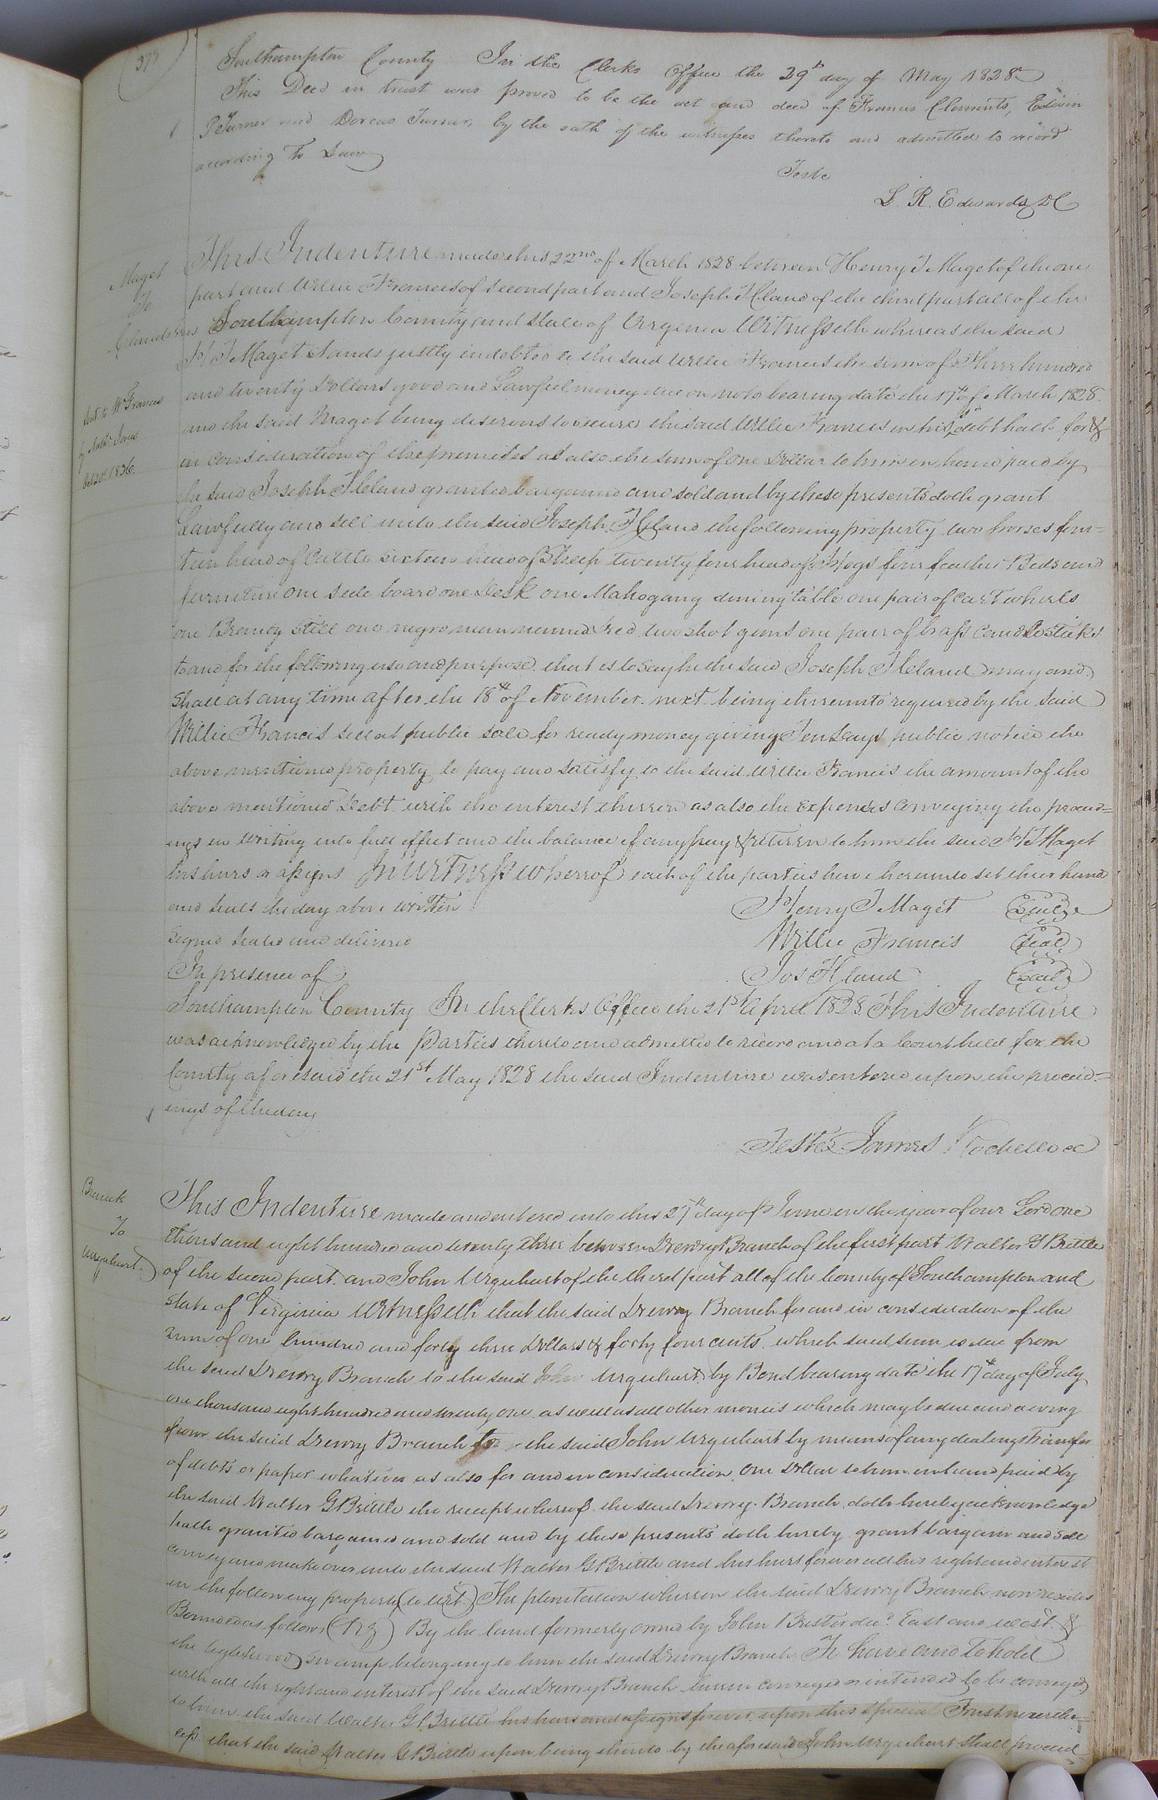 Southampton County In the Clerks Office the 29th day of May 1828
This Deed in trust was proved to be the act and deed of Francis Clements, Edwin
P Turner and Dorcas Turner, by the oath of the witnesses thereto and admitted to record
according to Law
Teste
L. R. Edwards DC
Maget
To
This Indenture made this 22nd of March 1828 between Henry J Maget of the one
part and Willie Francis of second part and Joseph H Claud of the third part all of the
Southampton County and State of Virginia Witnesseth whereas the said
H J Maget Stands justly indebted to the said Willie Francis the sum of Three hundred
and twenty Dollars good and Lawful money due on note bearing date the 17th of March 1828
and the said Maget being desirous to secure the said Willie Francis in his debt hath for &
in consideration of the premises as also the sum of One Dollar to him in hand paid by
the said Joseph H Claud granted bargained and sold and by these presents doth grant
Lawfully and sell unto the said Joseph H Claud the following property two horses four=
teen head of Cattle sixteen head of Sheep twenty four head of Hogs four feather Beds and
furniture one side board one Desk one Mahogany dining table one pair of cart wheels
one Brandy Still one negro man named Fred two shot guns one pair of brass candlesticks
to and for the following use and purpose that is to say he the said Joseph H Claud may and
Shall at any time after the 18th of November next being thereunto required by the said
Willie Francis sell at public sale for ready money giving Ten days public notice the
above mentioned property to pay and satisfy to the said Willie Francis the amount of the
above mentioned Debt with the interest thereon as also the expenses conveying the proceed=
ings in writing into full effect and the balance if any pay & return to him the said H J Maget
his heirs or assigns In Witness whereof each of the parties have hereunto set their hand
and seals the day above written Henry J Maget Seal
Signed Sealed and delivered Willie Francis Seal
In presence of Jos H Claud Seal
Southampton County In the Clerks Office the 21st April 1828 This Indenture
was acknowledged by the Parties thereto and admitted to record and at a Court held for the
County aforesaid the 21st May 1828 the said Indenture was entered upon the proceed=
ings of the day
Teste James Rochelle cc
Branch
To
Urquhart
This Indenture made and entered into this 27th day of June in the year of our Lord one
thousand eight hundred and twenty three between Drewry Branch of the first part Walter G Brittle
of the second part and John Urquhart of the third part all of the County of Southampton and
State of Virginia Witnesseth that the said Drewry Branch for and in consideration of the
sum of one hundred and forty three Dollars & forty four cents which said sum is due from
the said Drewry Branch to the said John Urquhart by Bond bearing date the 17th day of July
one thousand eight hundred and twenty one as well as all other monies which may be due and owing
from the said Drewry Branch to the said John Urquhart by means of any dealings Transfer
of debts or paper whatever as also for and in consideration One Dollar to him in hand paid by
the said Walter G Brittle the receipt whereof the said Drewry Branch doth hereby acknowledge
hath granted bargained and sold and by these presents doth hereby grant bargain and sell
convey and make over unto the said Walter G Brittle and his heirs forever all his right and interest
in the following property (to wit) The plantation whereon the said Drewry Branch now resides
Bounded as follows By the land formerly owned by John Decd East and west &
the swamp belonging to him the said Drewry Branch To have and to hold
with all the right and interest of the said Drewry Branch herein conveyed or intended to be conveyed
to him the said Walter G Brittle his heirs and assigns forever upon this special Trust neverthe=
less that the said Walter G Brittle upon being thereto by the aforesaid John Urquhart shall proceed